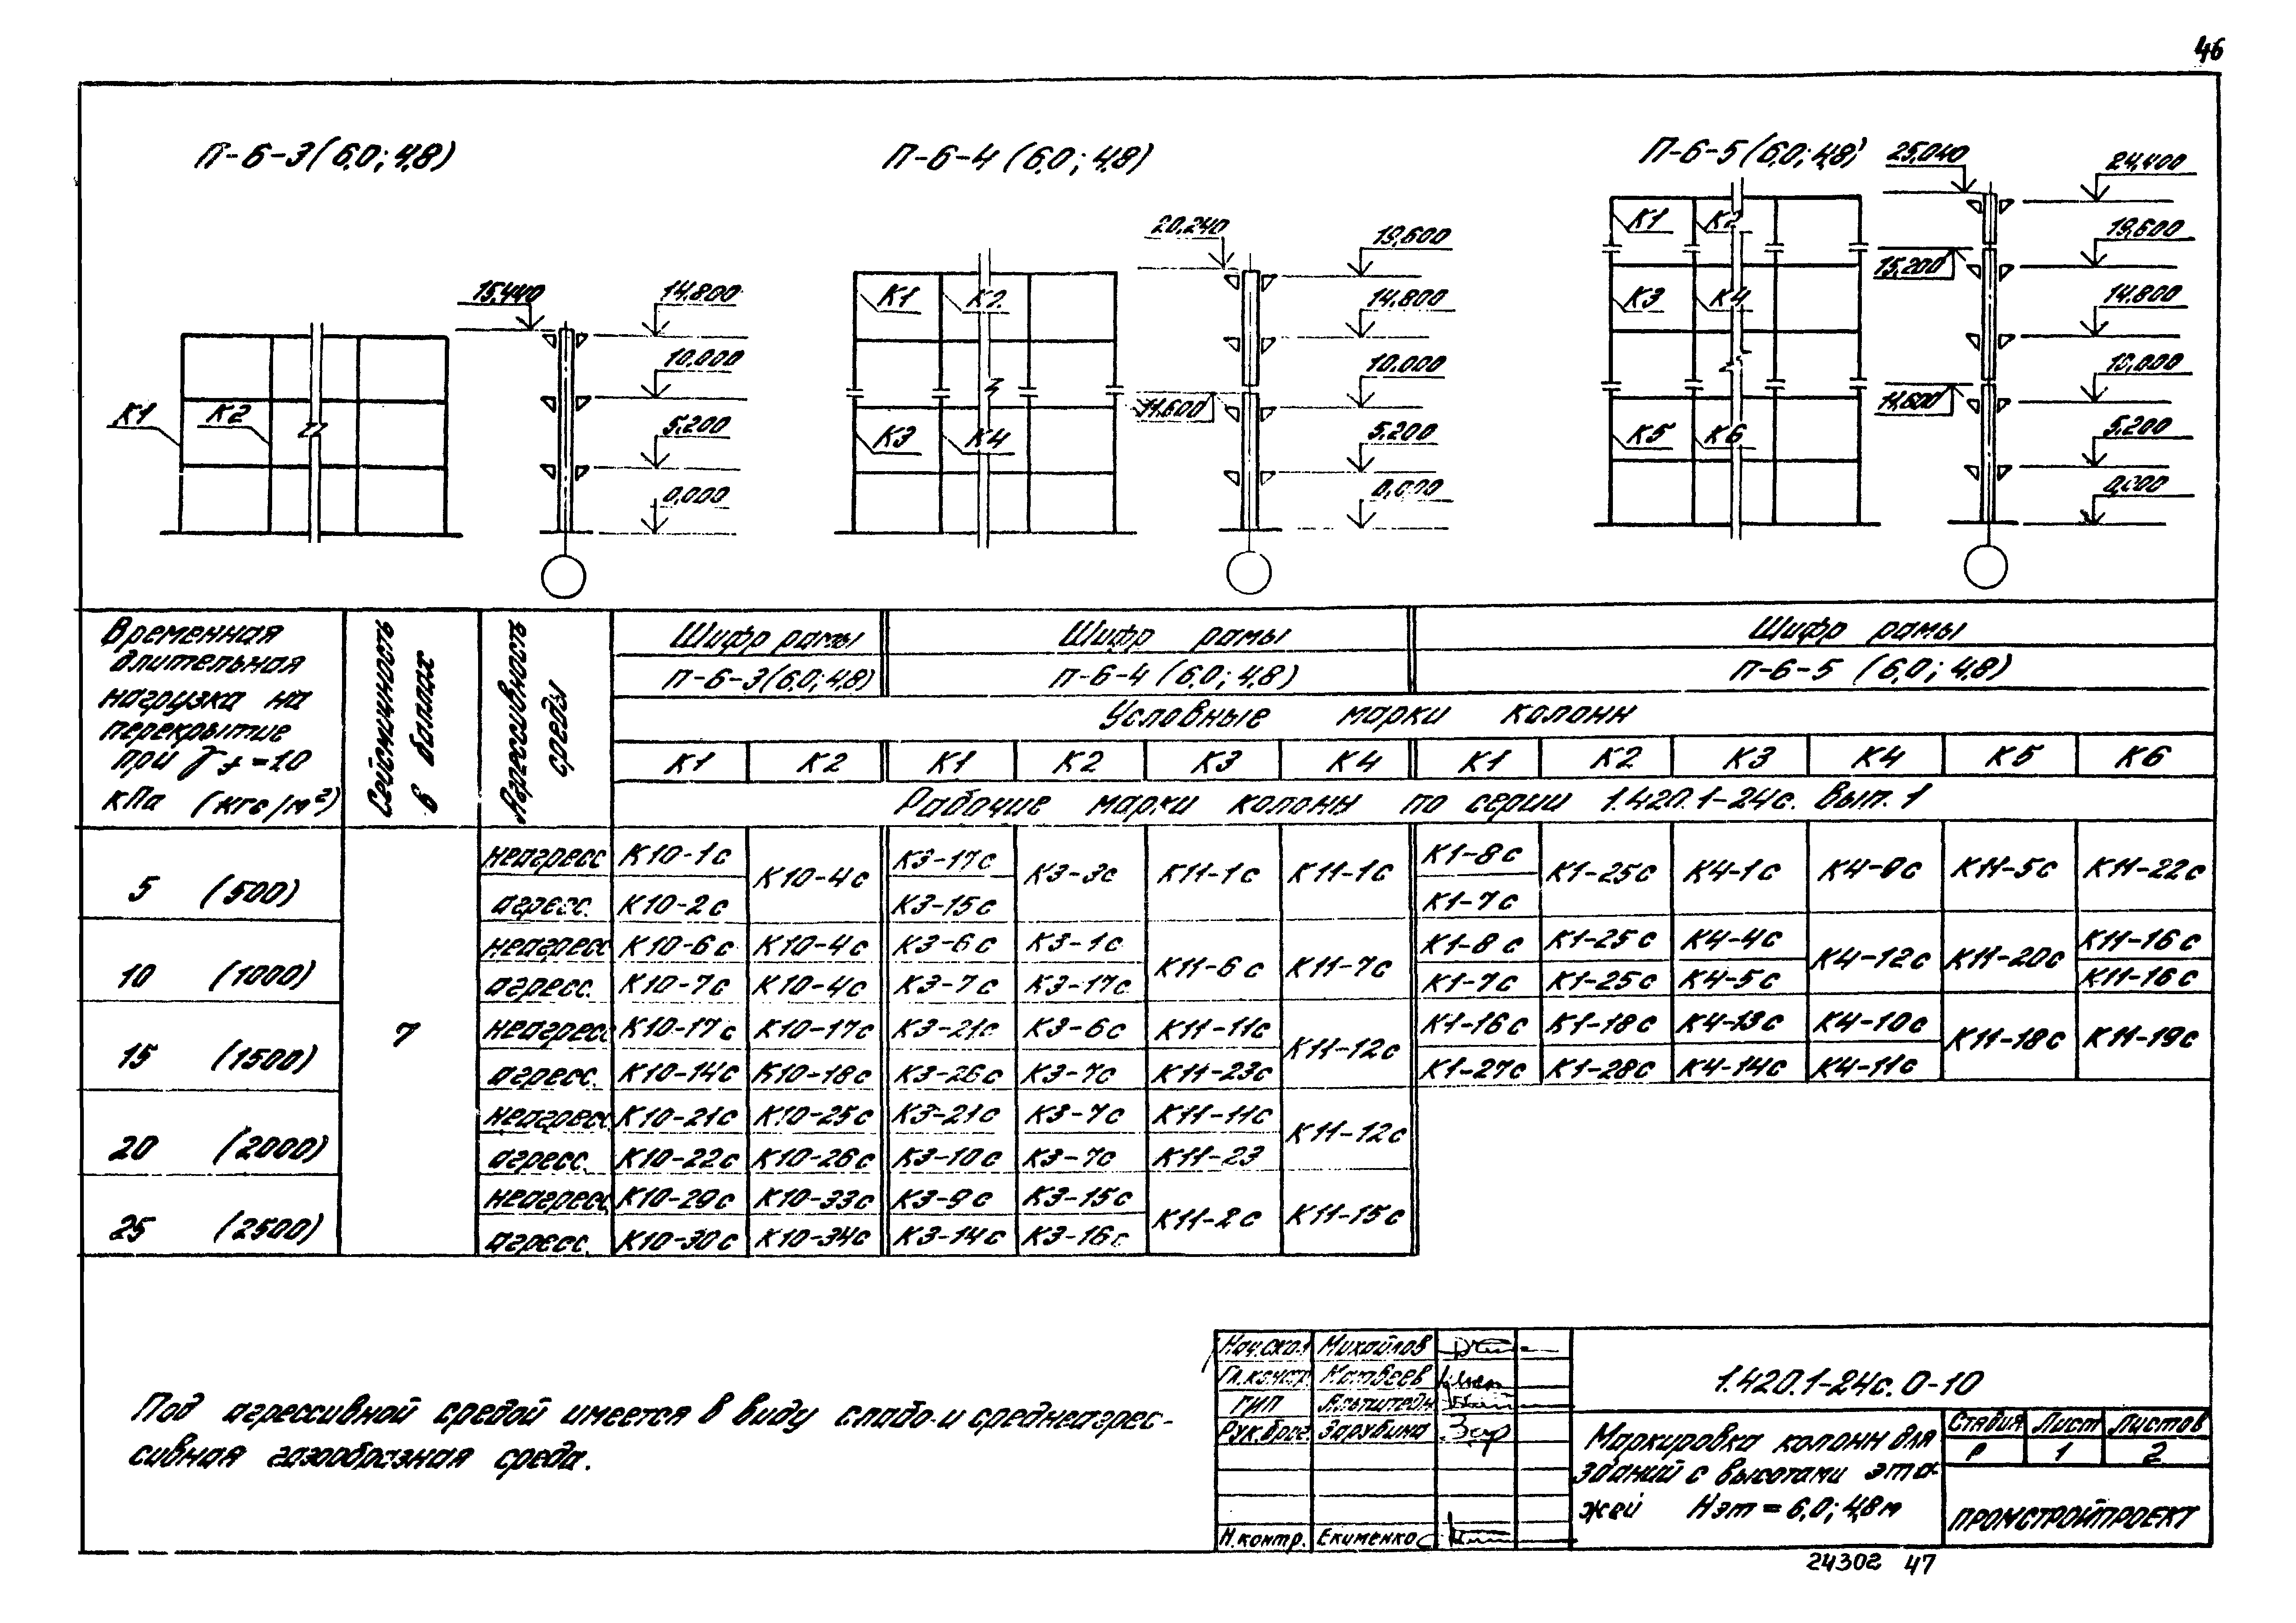 46
П-6-3 (6,0; 4,8)
П-6-4 (6,0; 4,8)
П-6-5 (6,0; 4,8)
К1
К2
15,440
14,800
10,000
5,200
0,000
К1
К2
К3
К4
20,240
11,600
19,600
14,800
10,000
5,200
0,000
К1
К2
К3
К4
К5
К6
25,040
15,200
11,600
24,400
19,600
14,800
10,000
5,200
0,000
Временная длительная нагрузка на перекрытие при γf = 1.0 кПа (кгс/м²)
Сейсмичность в баллах
Агрессивность среды
Шифр рамы
Шифр рамы
Шифр рамы
П-6-3 (6,0; 4,8)
П-6-4 (6,0; 4,8)
П-6-5 (6,0; 4,8)
Условные марки колонн
К1 К2 К1 К2 К3 К4 К1 К2 К3 К4 К5 К6
Рабочие марки колонн по серии 1.420.1-24с. Вып. 1
5 (500)
неагресс К10-1с К10-4с К3-17с К3-3с К11-1с К11-1с К1-8с К1-25с К4-1с К4-9с К11-5с К11-22с
агресс. К10-2с К3-15с К1-7с
10 (1000)
неагресс К10-6с К10-4с К3-6с К3-1с К11-6с К11-7с К1-8с К1-25с К4-4с К4-12с К11-20с К11-16с
агресс. К10-7с К10-4с К3-7с К3-17с К1-7с К1-25с К4-5с К11-16с
7
15 (1500)
неагресс К10-17с К10-17с К3-21с К3-6с К11-11с К11-12с К1-16с К1-18с К4-13с К4-10с К11-18с К11-19с
агресс. К10-14с К10-18с К3-26с К3-7с К11-23с К1-27с К1-28с К4-14с К4-11с
20 (2000)
неагресс. К10-21с К10-25с К3-21с К3-7с К11-11с К11-12с
агресс. К10-22с К10-26с К3-10с К3-7с К11-23
25 (2500)
неагресс. К10-29с К10-33с К3-9с К3-15с К11-2с К11-15с
агресс. К10-30с К10-34с К3-14с К3-16с
Под агрессивной средой имеется в виду слабо- и среднеагрес-
сивная газообразная среда.
Михайлов
Гл.констр. Матвеев
ГИП
Рук.бриг. Зарубина
Н.контр. Екименко
1.420.1-24с. 0-10
Маркировка колонн для
зданий с высотами эта-
жей Нэт = 6,0; 4,8 м
Стадия Лист Листов
Р 1 2
ПРОМСТРОЙПРОЕКТ
24302 47